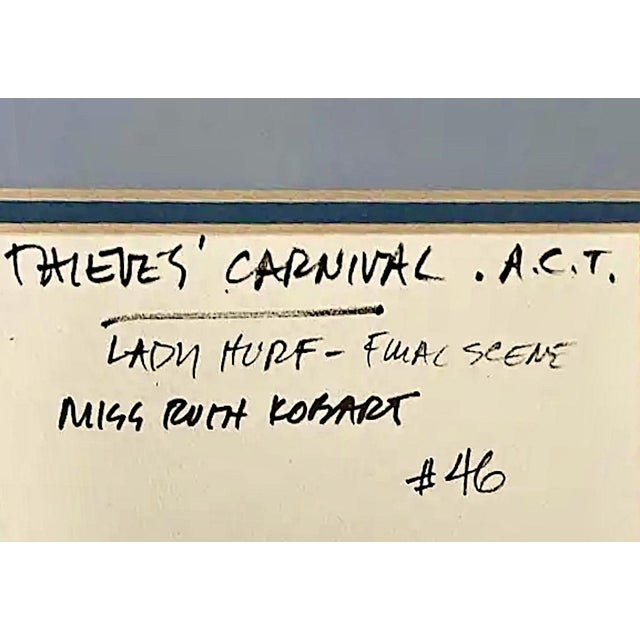 THIEVES' CARNIVAL. A.C.T.
LADY HURF - FINAL SCENE
MISS RUTH KOBART
#46